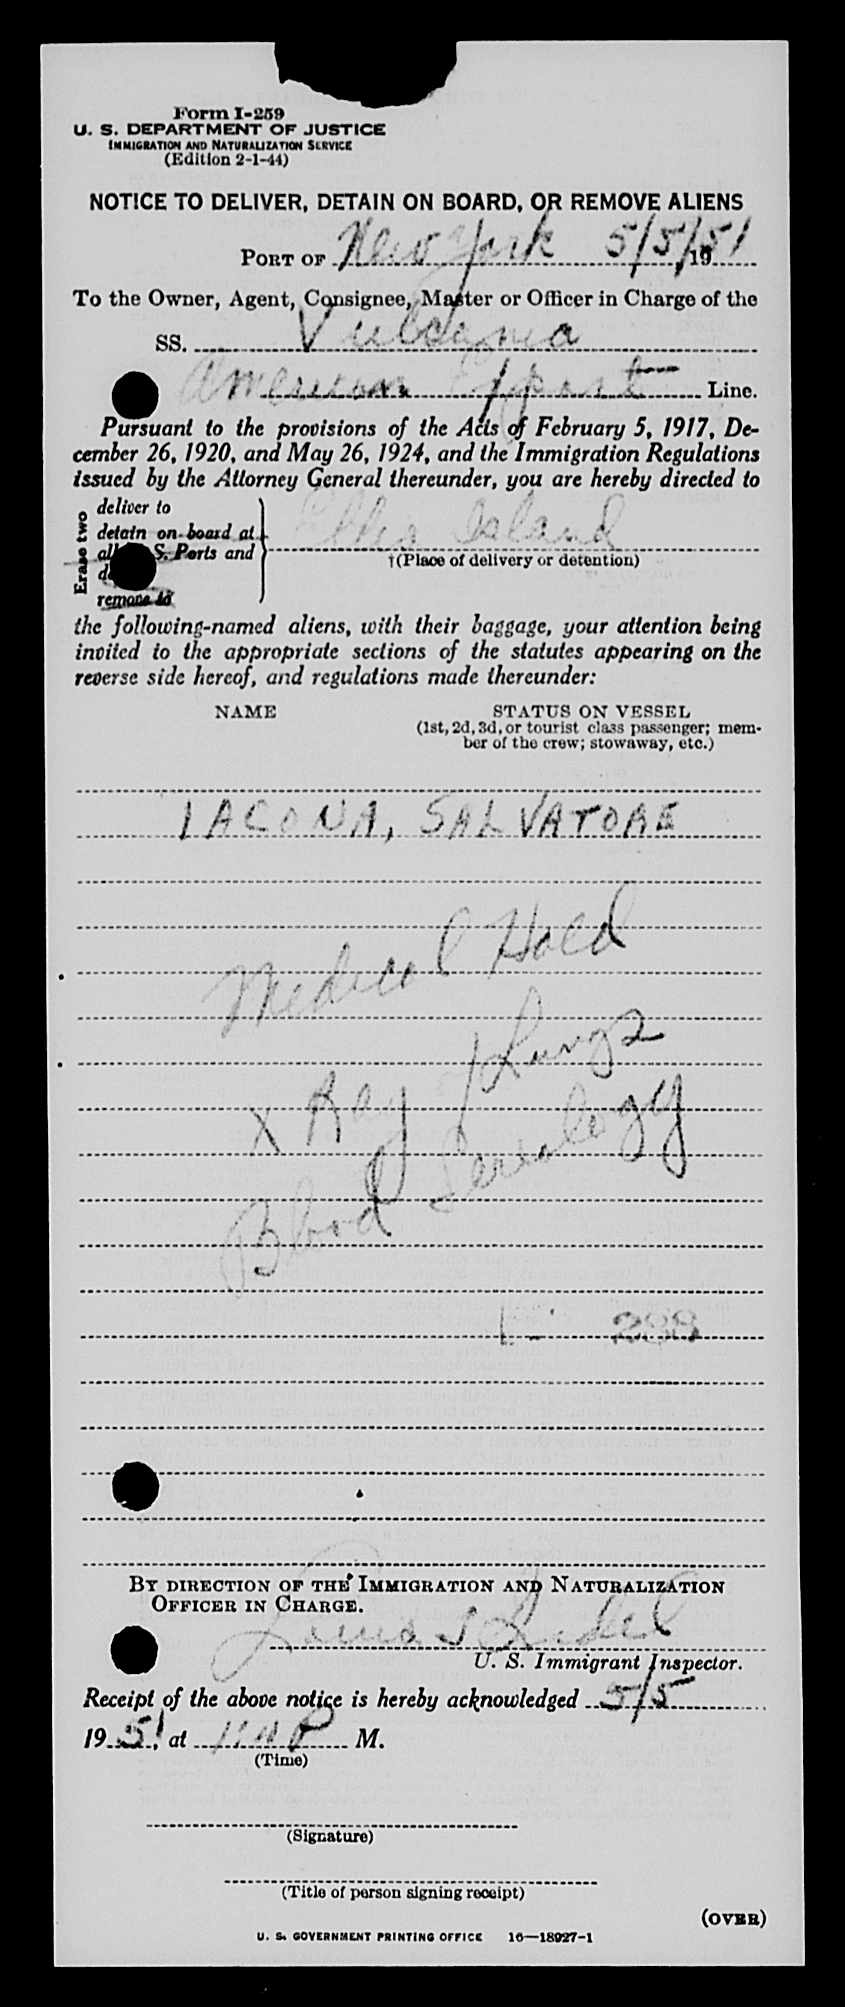 Form I-259
U. S. DEPARTMENT OF JUSTICE
IMMIGRATION AND NATURALIZATION SERVICE
(Edition 2-1-44)
NOTICE TO DELIVER, DETAIN ON BOARD, OR REMOVE ALIENS
PORT OF New York 5/5/, 1951
To the Owner, Agent, Consignee, Master or Officer in Charge of the
SS. Vulcania
American Export Line.
Pursuant to the provisions of the Acts of February 5, 1917, De-
cember 26, 1920, and May 26, 1924, and the Immigration Regulations
issued by the Attorney General thereunder, you are hereby directed to
Erase two
deliver to
detain on board at
S. Ports and
remove to
Ellis Island
†(Place of delivery or detention)
the following-named aliens, with their baggage, your attention being
invited to the appropriate sections of the statutes appearing on the
reverse side hereof, and regulations made thereunder:
NAME STATUS ON VESSEL
(1st, 2d, 3d, or tourist class passenger; mem-
ber of the crew; stowaway, etc.)
IACONA, SALVATORE
Medical Hold
X Ray of Lungs
Blood Serology
288
BY DIRECTION OF THE IMMIGRATION AND NATURALIZATION
OFFICER IN CHARGE.
U. S. Immigrant Inspector.
Receipt of the above notice is hereby acknowledged 5/5
1951, at P M.
(Time)
(Signature)
(Title of person signing receipt)
(OVER)
U. S. GOVERNMENT PRINTING OFFICE 16—18927-1